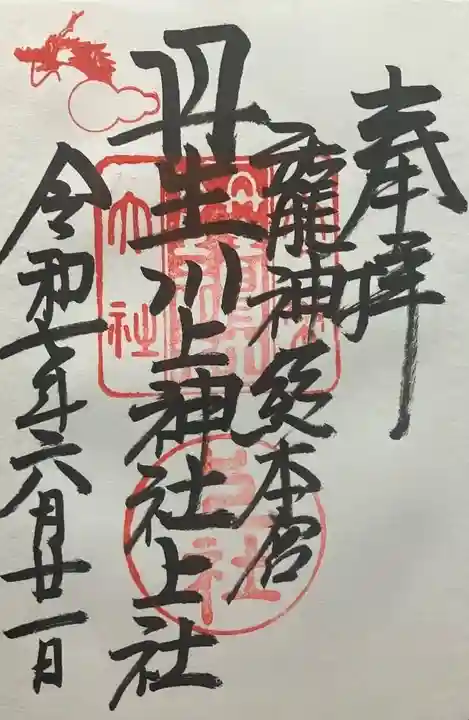 奉拝
龗神総本宮
丹生川上神社上社
令和七年六月廿一日